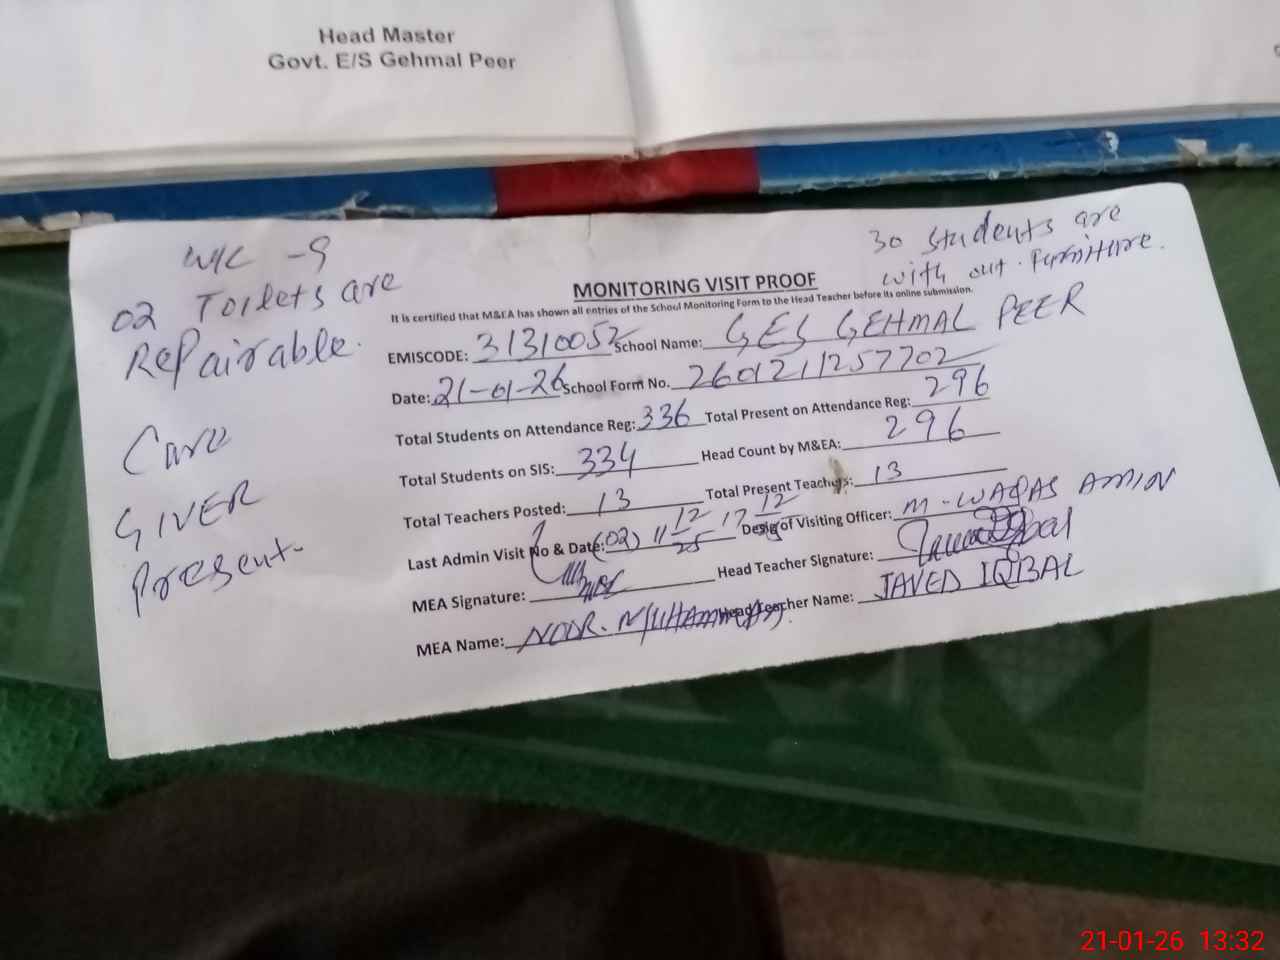 Head Master
Govt. E/S Gehmal Peer
W/C - 9
02 Toilets are
Repairable.
Care
GIVER
Present.
30 students are
with out furniture.
MONITORING VISIT PROOF
It is certified that M&EA has shown all entries of the School Monitoring Form to the Head Teacher before its online submission.
EMISCODE: 31310052 School Name: GES GEHMAL PEER
Date: 21-01-26 School Form No. 2601211257702
Total Students on Attendance Reg: 336 Total Present on Attendance Reg: 296
Total Students on SIS: 334 Head Count by M&EA: 296
Total Teachers Posted: 13 Total Present Teachers: 13
Last Admin Visit No & Date: (02) 11 12/25 17 12 Desig of Visiting Officer: M-WAQAS AMIN
MEA Signature: Head Teacher Signature:
MEA Name: NOOR. MUHAMMAD. Head Teacher Name: JAVED IQBAL
21-01-26 13:32